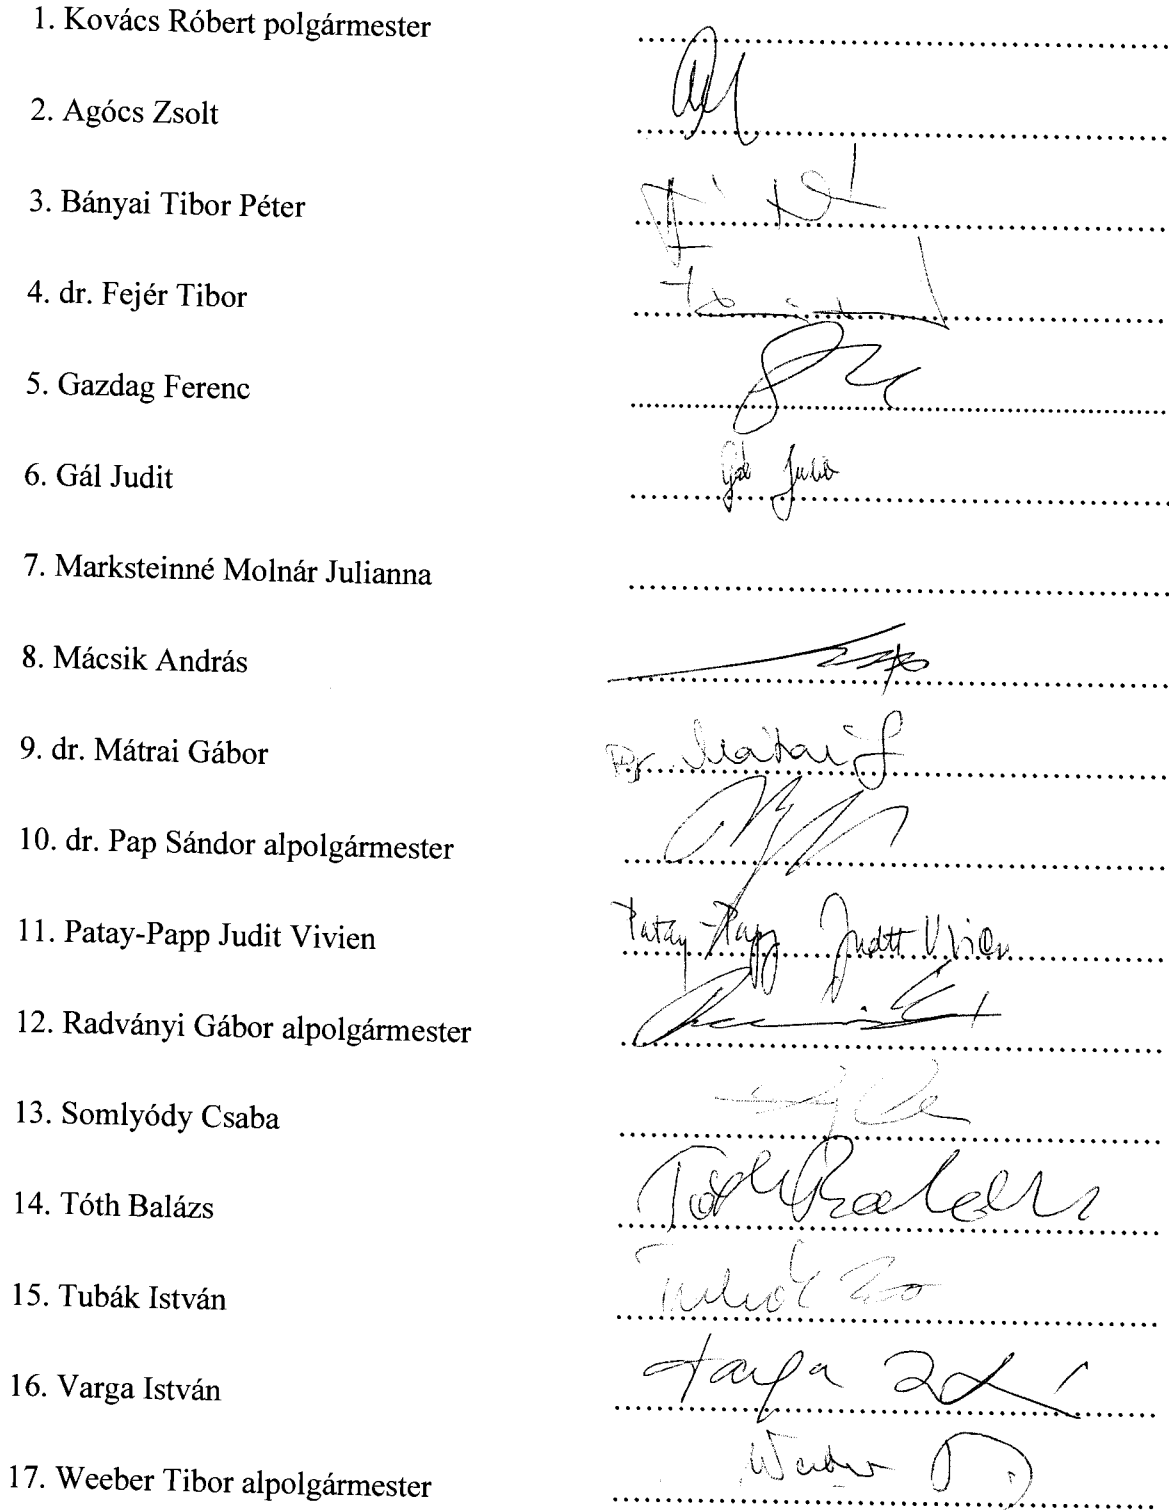 1. Kovács Róbert polgármester
2. Agócs Zsolt
3. Bányai Tibor Péter
4. dr. Fejér Tibor
5. Gazdag Ferenc
6. Gál Judit Gál Judit
7. Marksteinné Molnár Julianna
8. Mácsik András
9. dr. Mátrai Gábor Dr. Mátrai G
10. dr. Pap Sándor alpolgármester
11. Patay-Papp Judit Vivien Patay-Papp Judit Vivien
12. Radványi Gábor alpolgármester
13. Somlyódy Csaba
14. Tóth Balázs Tóth Balázs
15. Tubák István Tubák
16. Varga István Varga
17. Weeber Tibor alpolgármester Weeber